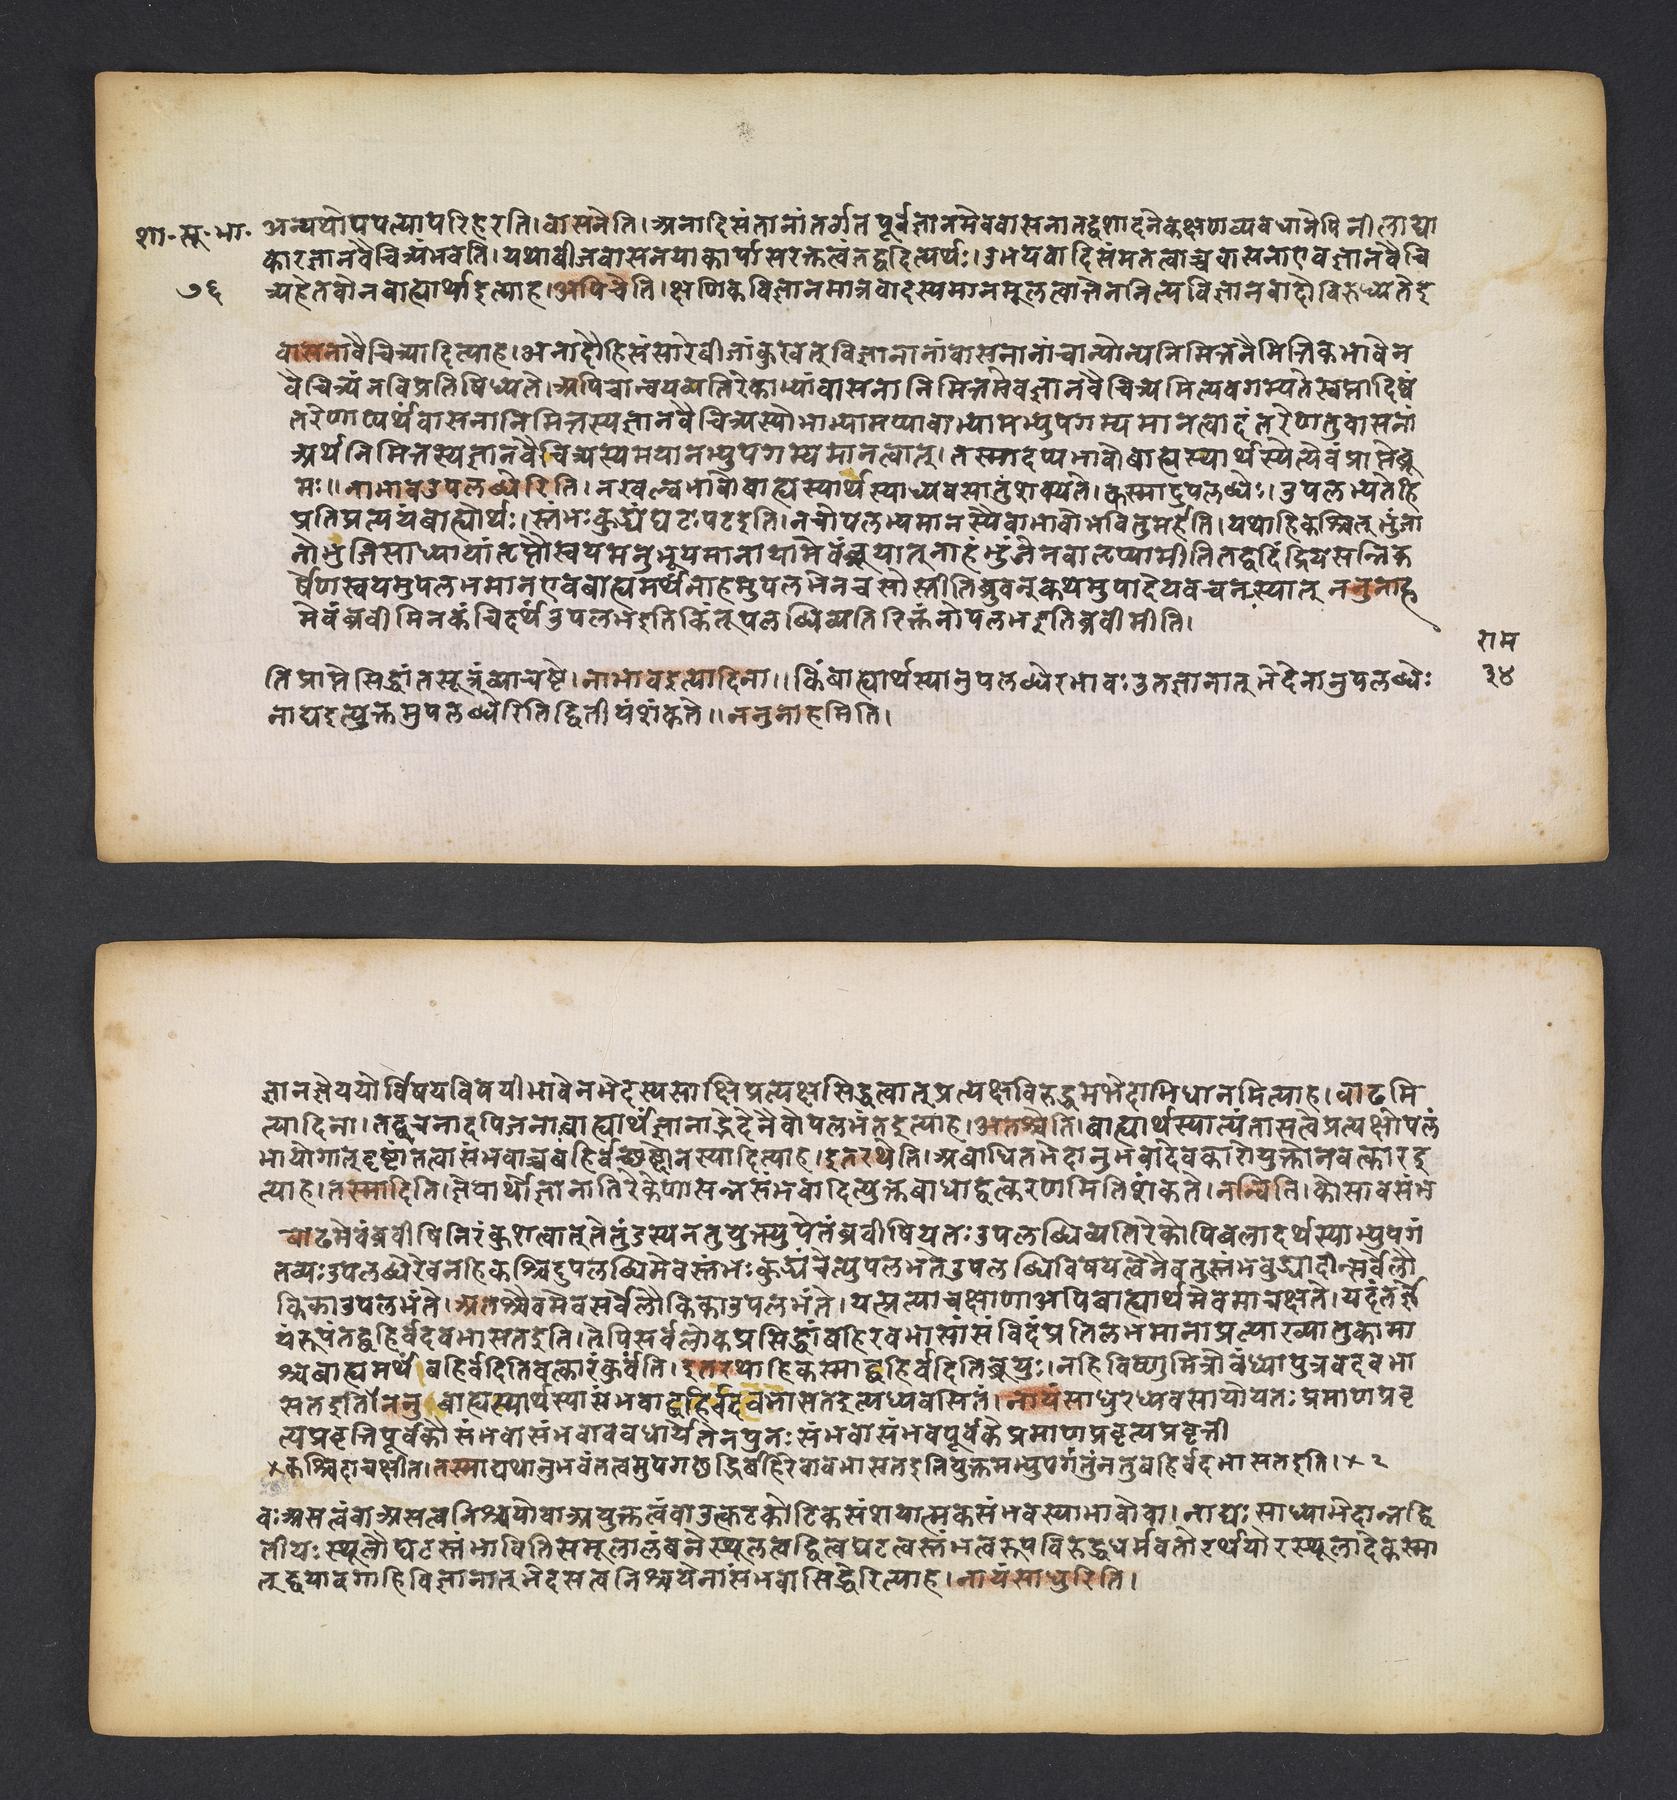 शा. सू. भा.
७६
अन्यथोपपत्यापरिहरति।वासनेति।अनादिसंतानांतर्गतपूर्वज्ञानमेववासनातद्वशादनेकक्षणव्यवधानेपिनीलाद्या
कारज्ञानवैचित्र्यंभवति।यथाबीजवासनयाकार्पासरक्तत्वंतद्वदित्यर्थः।उभयवादिसंमतत्वाच्चवासनाएवज्ञानवैचि
त्र्यहेतवोनबाह्यार्थाइत्याह।अपिचेति।क्षणिकविज्ञानमात्रवादस्यमानमूलत्वात्तेननित्यविज्ञानवादोविरुध्यतेइ
वासनावैचित्र्यादित्याह।अनादौहिसंसारेबीजांकुरवत्विज्ञानानांवासनानांचान्योन्यनिमित्तनैमित्तिकभावेन
वैचित्र्यंनविप्रतिषिध्यते।अपिचान्वयव्यतिरेकाभ्यांवासनानिमित्तमेवज्ञानवैचित्र्यमित्यवगम्यतेस्वप्नादिष्वं
तरेणाप्यर्थंवासनानिमित्तस्यज्ञानवैचित्र्यस्योभाभ्यामप्यावाभ्यामभ्युपगम्यमानत्वादंतरेणतुवासनां
अर्थनिमित्तस्यज्ञानवैचित्र्यस्यमयानभ्युपगम्यमानत्वात्।तस्मादप्यभावोबाह्यस्यार्थस्येत्येवंप्राप्तेब्रू
मः॥नाभावउपलब्धेरिति।नखल्वभावोबाह्यस्यार्थस्याध्यवसातुंशक्यते।कस्मादुपलब्धेः।उपलभ्यतेहि
प्रतिप्रत्ययंबाह्योर्थः।स्तंभःकुड्यंघटःपटइति।नचोपलभ्यमानस्यैवाभावोभवितुमर्हति।यथाहिकश्चित्भुंजा
नोभुजिसाध्यायांतृप्तौस्वयमनुभूयमानायामेवंब्रूयात्नाहंभुंजेनवातृप्यामीतितद्वदिंद्रियसन्निक
र्षेणस्वयमुपलभमानएवबाह्यमर्थंनाहमुपलभेनचसोस्तीतिब्रुवन्कथमुपादेयवचनःस्यात्ननुनाह
मेवंब्रवीमिनकंचिदर्थंउपलभइतिकिंतूपलब्धिव्यतिरिक्तंनोपलभइतिब्रवीमीति।
तिप्राप्तेसिद्धांतसूत्रंव्याचष्टे।नाभावइत्यादिना॥किंबाह्यार्थस्यानुपलब्धेरभावःउतज्ञानात्भेदेनानुपलब्धेः
नाद्यइत्युक्तमुपलब्धेरितिद्वितीयंशंकते॥ननुनाहमिति।
राम
३४
ज्ञानज्ञेययोर्विषयविषयीभावेनभेदस्यसाक्षिप्रत्यक्षसिद्धत्वात्प्रत्यक्षविरुद्धमभेदाभिधानमित्याह।बाढमि
त्यादिना।तद्वचनादपिजनाबाह्यार्थंज्ञानाद्भेदेनैवोपलभंतइत्याह।अतश्चेति।बाह्यार्थस्यात्यंतासत्वेप्रत्यक्षोपलं
भायोगात्दृष्टांतत्वासंभवाच्चबहिर्वच्छब्दोनस्यादित्याह।इतरथेति।अबाधितभेदानुभवादेवकारोयुक्तोनवत्कारइ
त्याह।तस्मादिति।ज्ञेयार्थोज्ञानातिरेकेणासन्नसंभवादित्युक्तबाधाद्वत्करणमितिशंकते।नन्विति।कोसावसंभ
बाढमेवंब्रवीषिनिरंकुशत्वात्तेतुंडस्यनतुयुक्त्युपेतंब्रवीषियतःउपलब्धिव्यतिरेकोपिबलादर्थस्याभ्युपगं
तव्यःउपलब्धेरेवनहिकश्चिदुपलब्धिमेवस्तंभःकुड्यंचेत्युपलभतेउपलब्धिविषयत्वेनैवतुस्तंभकुड्यादीन्सर्वेलौ
किकाउपलभंते।अतश्चैवमेवसर्वेलौकिकाउपलभंते।यत्प्रत्याचक्षाणाअपिबाह्यार्थमेवमाचक्षते।यदंतर्ज्ञे
यंरूपंतद्बहिर्वदवभासतइति।तेपिसर्वलोकप्रसिद्धांबहिरवभासांसंविदंप्रतिलभमानाप्रत्याख्यातुकामा
श्चबाह्यमर्थंबहिर्वदितिवत्कारंकुर्वंति।इतरथाहिकस्माद्बहिर्वदितिब्रूयुः।नहिविष्णुमित्रोवंध्यापुत्रवदवभा
सतइति।ननुबाह्यस्यार्थस्यासंभवाद्बहिर्वदवभासतेइत्यध्यवसितं।नायंसाधुरध्यवसायोयतःप्रमाणप्रवृ
त्यप्रवृत्तिपूर्वकौसंभवासंभवाववधार्येतेनपुनःसंभवासंभवपूर्वकेप्रमाणप्रवृत्यप्रवृत्ती
×कश्चिदाचक्षीत।तस्माद्यथानुभवंतत्वमुपगच्छद्भिर्बहिरेवावभासतइतियुक्तमभ्युपगंतुंनतुबहिर्वदभासतइति।× २
वःअसत्वंवाअसत्वनिश्चयोवाअयुक्तत्वंवाउत्कटकोटिकसंशयात्मकसंभवस्याभावोवा।नाद्यःसाध्याभेदान्नद्वि
तीयःस्थूलोघटस्तंभावितिसमूलालंबनेस्थूलत्वद्वित्वघटत्वस्तंभत्वरूपविरुद्धधर्मवतोरर्थयोरस्थूलादेकस्मा
त्द्वयावगाहिविज्ञानात्भेदसत्वनिश्चयेनासंभवासिद्धेरित्याह।नायंसाधुरिति।